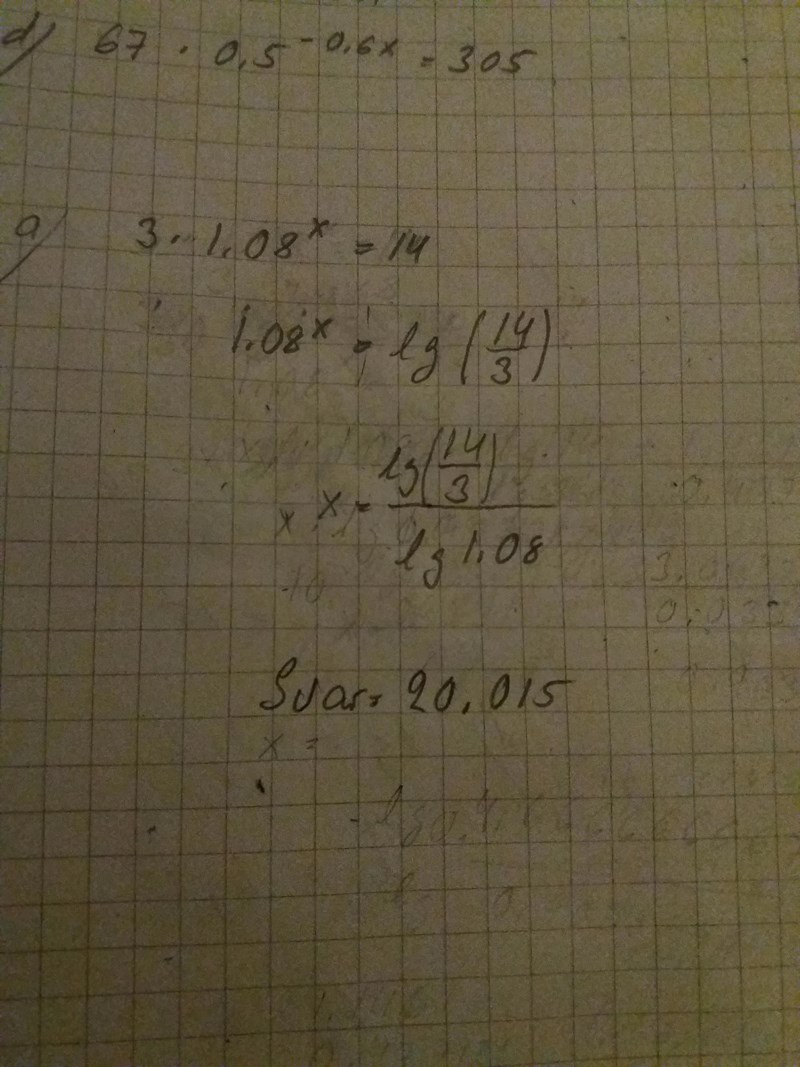 d) 67 · 0,5^-0,6x = 305
a) 3 · 1.08^x = 14
1.08^x = lg (14/3)
x x = lg(14/3) / lg 1.08
Svar = 20.015
x =